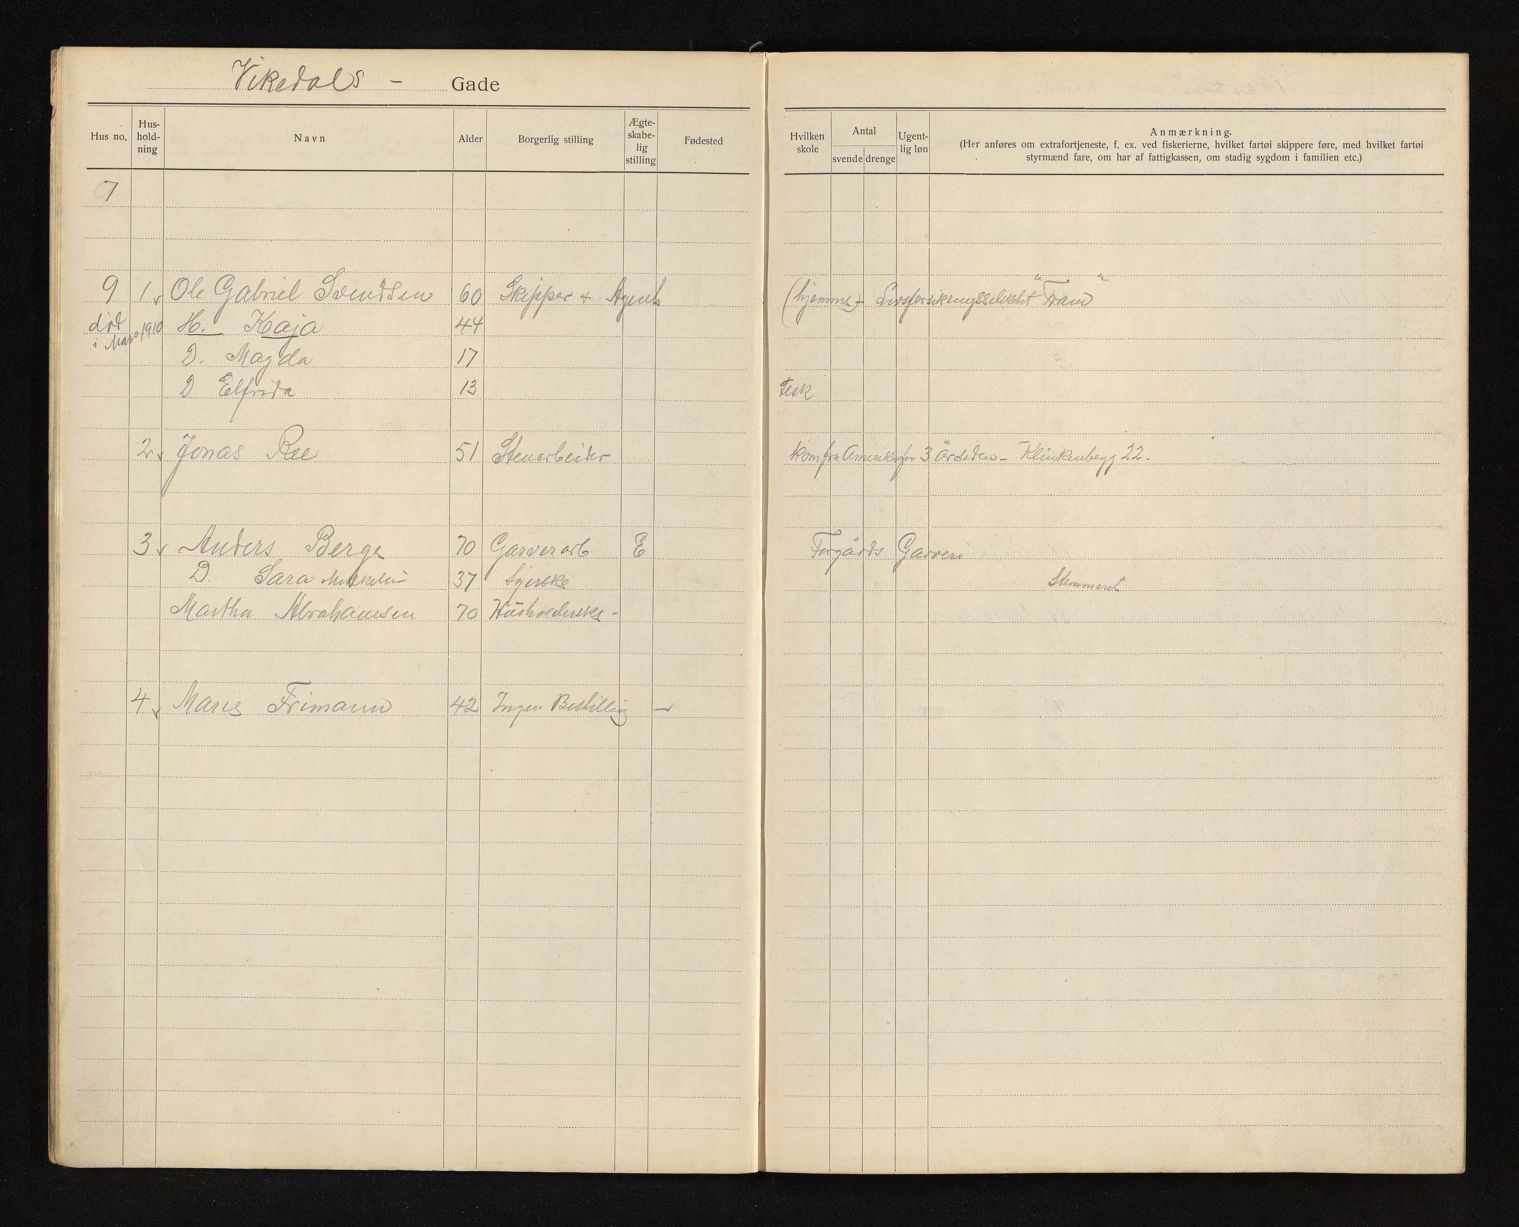 Vikedals - Gade
Hus no. Hus-holdning Navn Alder Borgerlig stilling Ægte-skabe-lig stilling Fødested Hvilken skole Antal svende drenge Ugent-lig løn Anmærkning.
(Her anføres om extrafortjeneste, f. ex. ved fiskerierne, hvilket fartøi skippere føre, med hvilket fartøi
styrmænd fare, om har af fattigkassen, om stadig sygdom i familien etc.)
7
9 1 Ole Gabriel Svendsen 60 Skipper + Agent (hjemme) - "Fram"
død H. Kaja 44
i Mars 1910
D. Magda 17
D Elfrida 13
2 Jonas Ree 51 Stenarbeider kom fra Amerika for 3 År siden - Klinkenbergg 22.
3 Anders Berge 70 Garverarb E Forgårds Garveri
D Sara 37 Syerske Stemmeret
Martha Abrahamsen 70 Husholderske -
4 Marie Frimann 42 Ingen Bestilling -